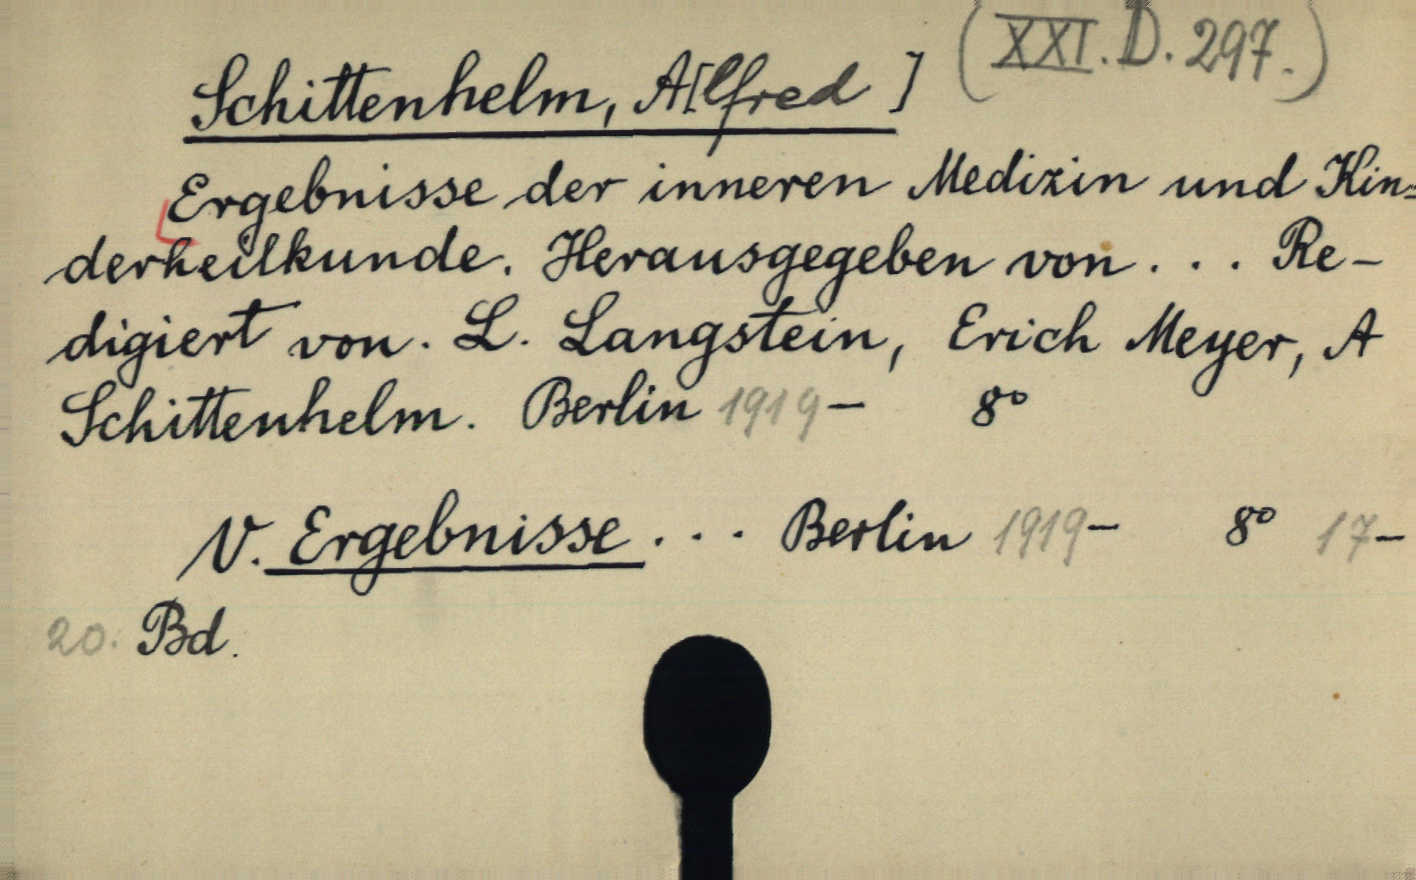 (XXI. D. 297.)
Schittenhelm, A[lfred ]
Ergebnisse der inneren Medizin und Kin=
derheilkunde. Herausgegeben von . . . Re-
digiert von. L. Langstein, Erich Meyer, A
Schittenhelm. Berlin 1919- 8°
V. Ergebnisse . . . Berlin 1919- 8° 17-
20. Bd.